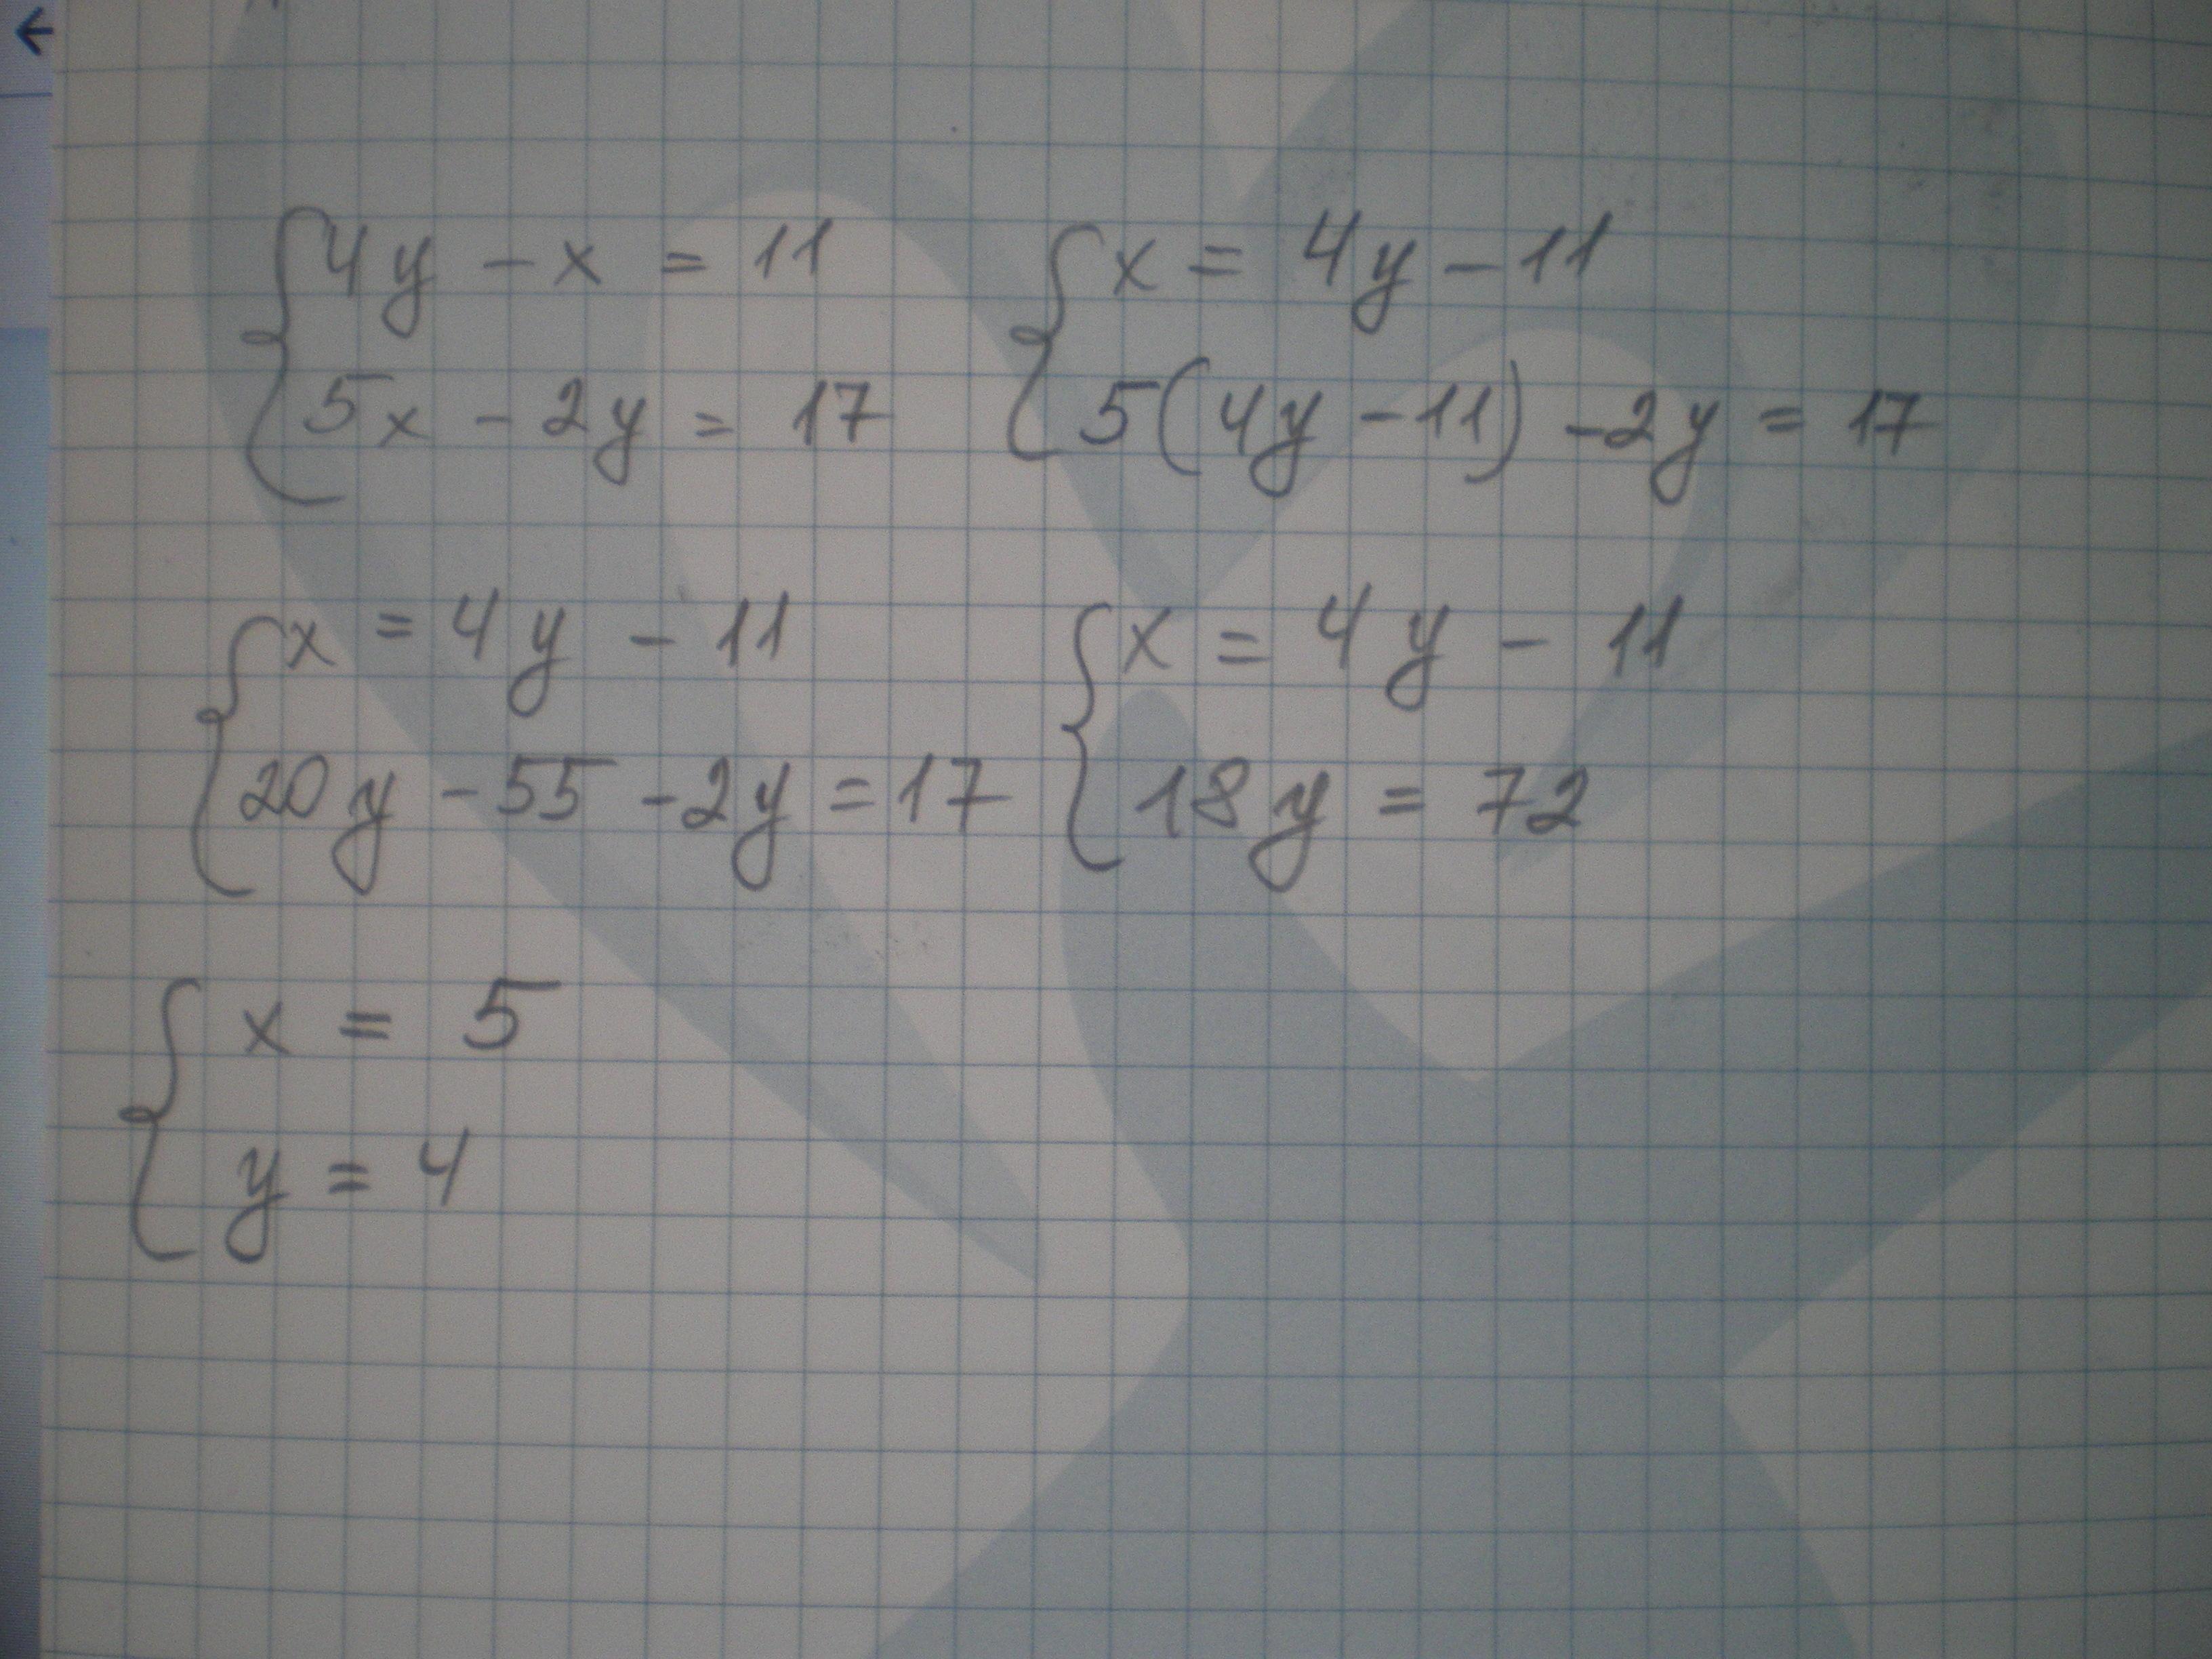 4y - x = 11
5x - 2y = 17
x = 4y - 11
5(4y - 11) - 2y = 17
x = 4y - 11
20y - 55 - 2y = 17
x = 4y - 11
18y = 72
x = 5
y = 4